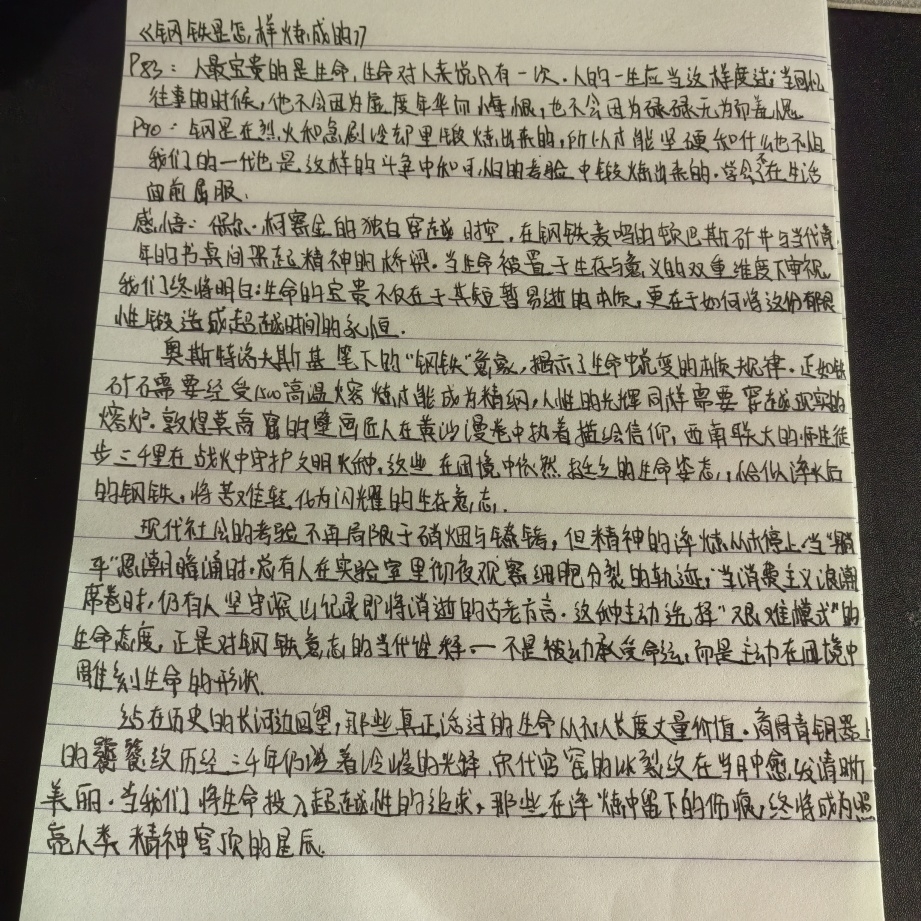 《钢铁是怎样炼成的》
P83：人最宝贵的是生命,生命对人来说只有一次.人的一生应当这样度过:当回忆
往事的时候,他不会因为虚度年华而悔恨,也不会因为碌碌无为而羞愧
P90：钢是在烈火和急剧冷却里锻炼出来的,所以才能坚硬和什么也不怕
我们的一代也是这样的斗争中和可怕的考验中锻炼出来的.学会了不在生活
面前屈服.
感悟：保尔·柯察金的独白穿越时空,在钢铁轰鸣的顿巴斯矿井与当代青
年的书桌间架起精神的桥梁.当生命被置于生存与意义的双重维度下审视,
我们终将明白:生命的宝贵不仅在于其短暂易逝的本质,更在于如何将这份有限
性锻造成超越时间的永恒.
奥斯特洛夫斯基笔下的"钢铁"意象,揭示了生命中蜕变的本质规律.正如铁
矿石需要经受1500°高温熔炼才能成为精钢,人性的光辉同样需要穿越现实的
熔炉.敦煌莫高窟的壁画匠人在黄沙漫卷中执着描绘信仰,西南联大的师生徒
步三千里在战火中守护文明火种,这些在困境中依然挺立的生命姿态,恰似淬火后
的钢铁,将苦难转化为闪耀的生存意志.
现代社会的考验不再局限于硝烟与镣铐,但精神的淬炼从未停止.当"躺
平"思潮暗涌时,总有人在实验室里彻夜观察细胞分裂的轨迹;当消费主义浪潮
席卷时,仍有人坚守深山纪录即将消逝的古老方言.这种主动选择"艰难模式"的
生命态度,正是对钢铁意志的当代诠释一不是被动承受命运,而是主动在困境中
雕刻生命的形状.
站在历史的长河边回望,那些真正活过的生命从不以长度丈量价值.商周青铜器上
的饕餮纹历经三千年仍泛着冷峻的光辉,宋代官窑的冰裂纹在岁月中愈发清晰
美丽.当我们将生命投入超越性的追求,那些在淬炼中留下的伤痕,终将成为照
亮人类精神穹顶的星辰.